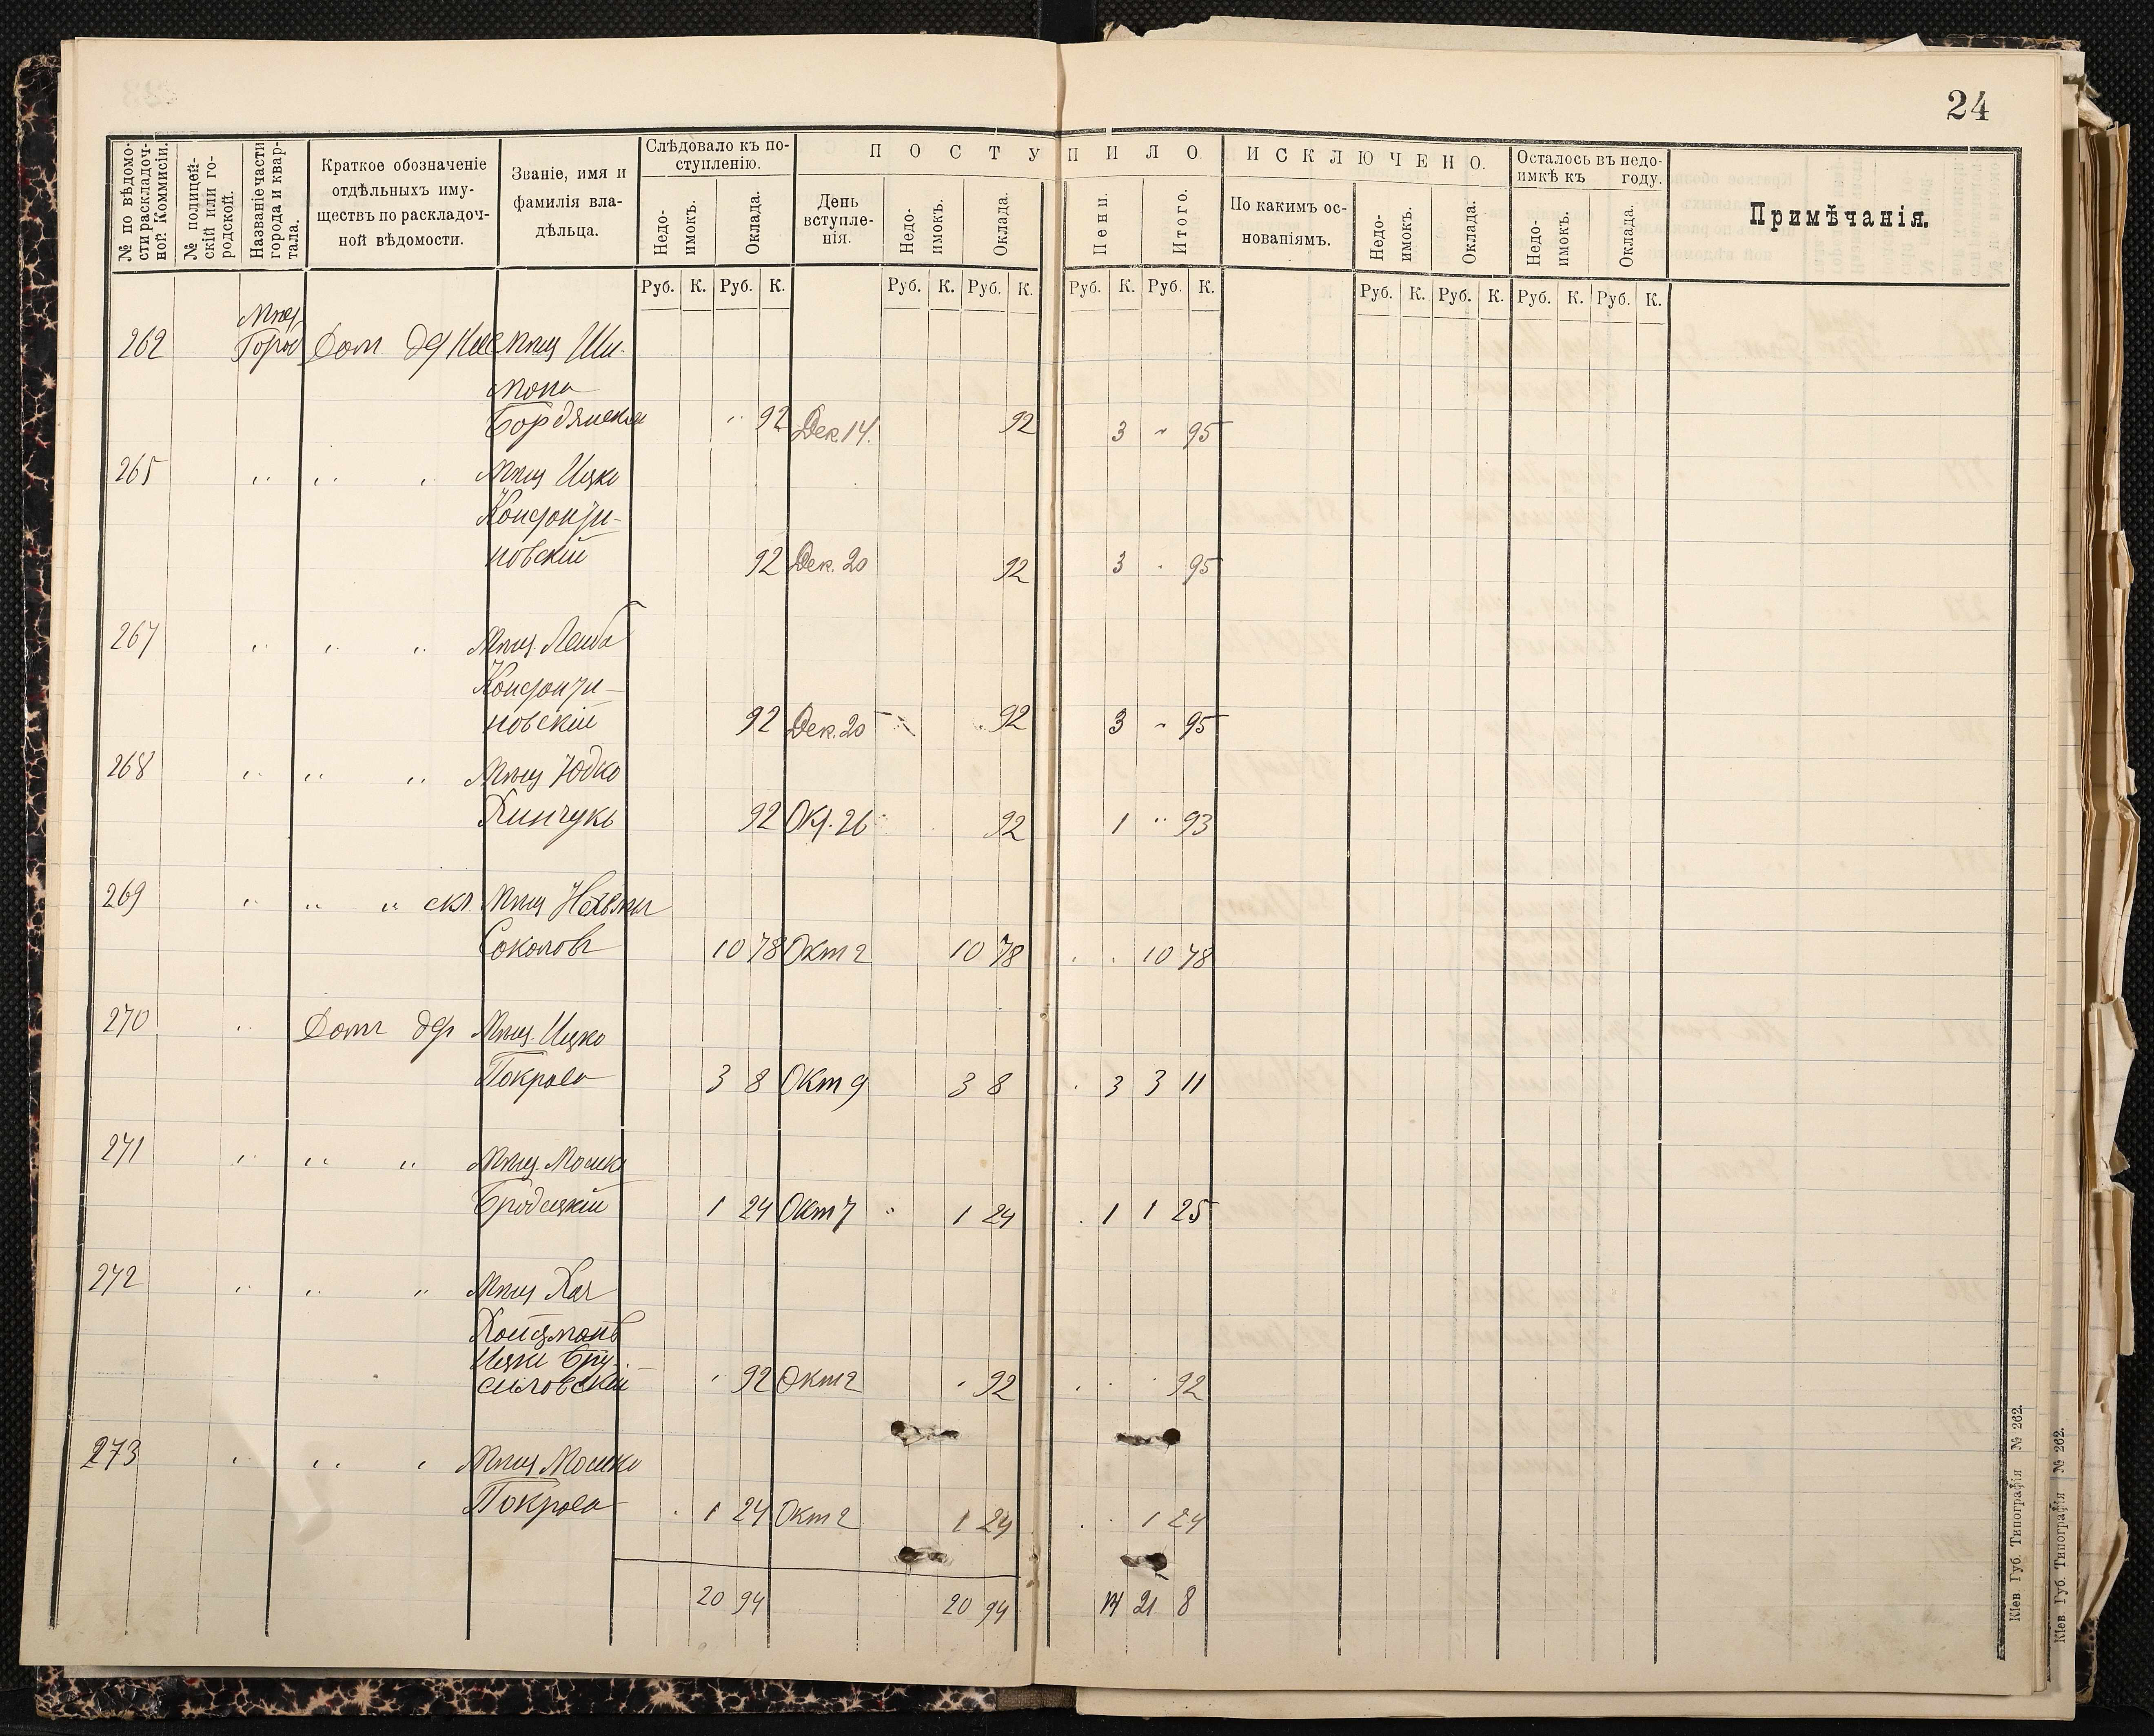 24
№ по вѣдомости раскладочной Коммисіи.
№ полицейскій или городской.
Названіе части города и квартала.
Краткое обозначеніе отдѣльныхъ имуществъ по раскладочной вѣдомости.
Званіе, имя и фамилія владѣльца.
Слѣдовало къ поступленію.
ПОСТУПИЛО
ИСКЛЮЧЕНО.
Осталось въ недоимкѣ къ году.
Примѣчанія.
Недоимокъ. Оклада. День вступленія. Недоимокъ. Оклада. Пени. Итого. По какимъ основаніямъ. Недоимокъ. Оклада. Недоимокъ. Оклада.
Руб. К. Руб. К. Руб. К. Руб. К. Руб. К. Руб. К. Руб. К. Руб. К. Руб. К. Руб. К.
262 Дом Мѣщ Ши-
мона
92 Дек 14. 92 3 " 95
265 " " " " Мѣщ Ицко
новскій 92 Дек. 20 92 3 " 95
267 " " " Мѣщ. Лейба
новскій 92 Дек. 20 92 3 " 95
268 " " " Мѣщ Юдко
Хинчукъ 92 Окт. 26 92 1 " 93
269 " " " скл. Мѣщ
Соколовъ 10 78 Окт 2 10 78 10 78
270 " Домъ Мѣщ. Ицко
Покраса 3 8 Окт 9 3 8 3 3 11
271 " " " Мѣщ. Мошко
Бродецкій 1 24 Окт 7 1 24 1 1 25
272 " " " Мѣщ
Ицко Бру-
силовскій 92 Окт 2 92 92
273 " " " Мѣщ Мошко
Покраса 1 24 Окт 2 1 24 1 24
20 94 20 94 14 21 8
Кіев. Губ. Типографія № 262.
Кіев. Губ. Типографія № 262.